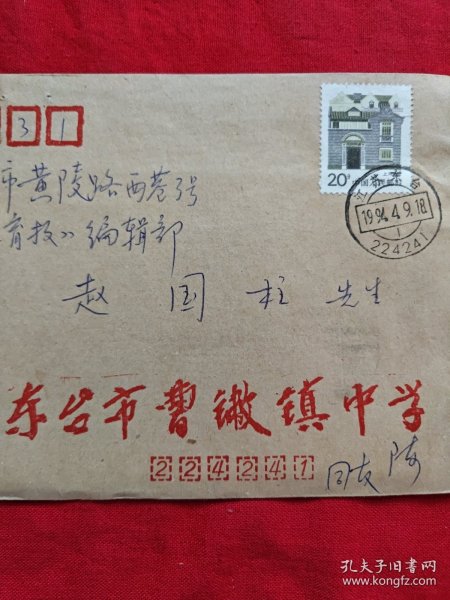 31
市黄陵路西巷3号
育报》编辑部
赵国柱 先生
20分 中国人民邮政
江苏 东台
1994.4.9.18
1
224241
东台市曹撇镇中学
224241
孔夫子旧书网
www.kongfz.com